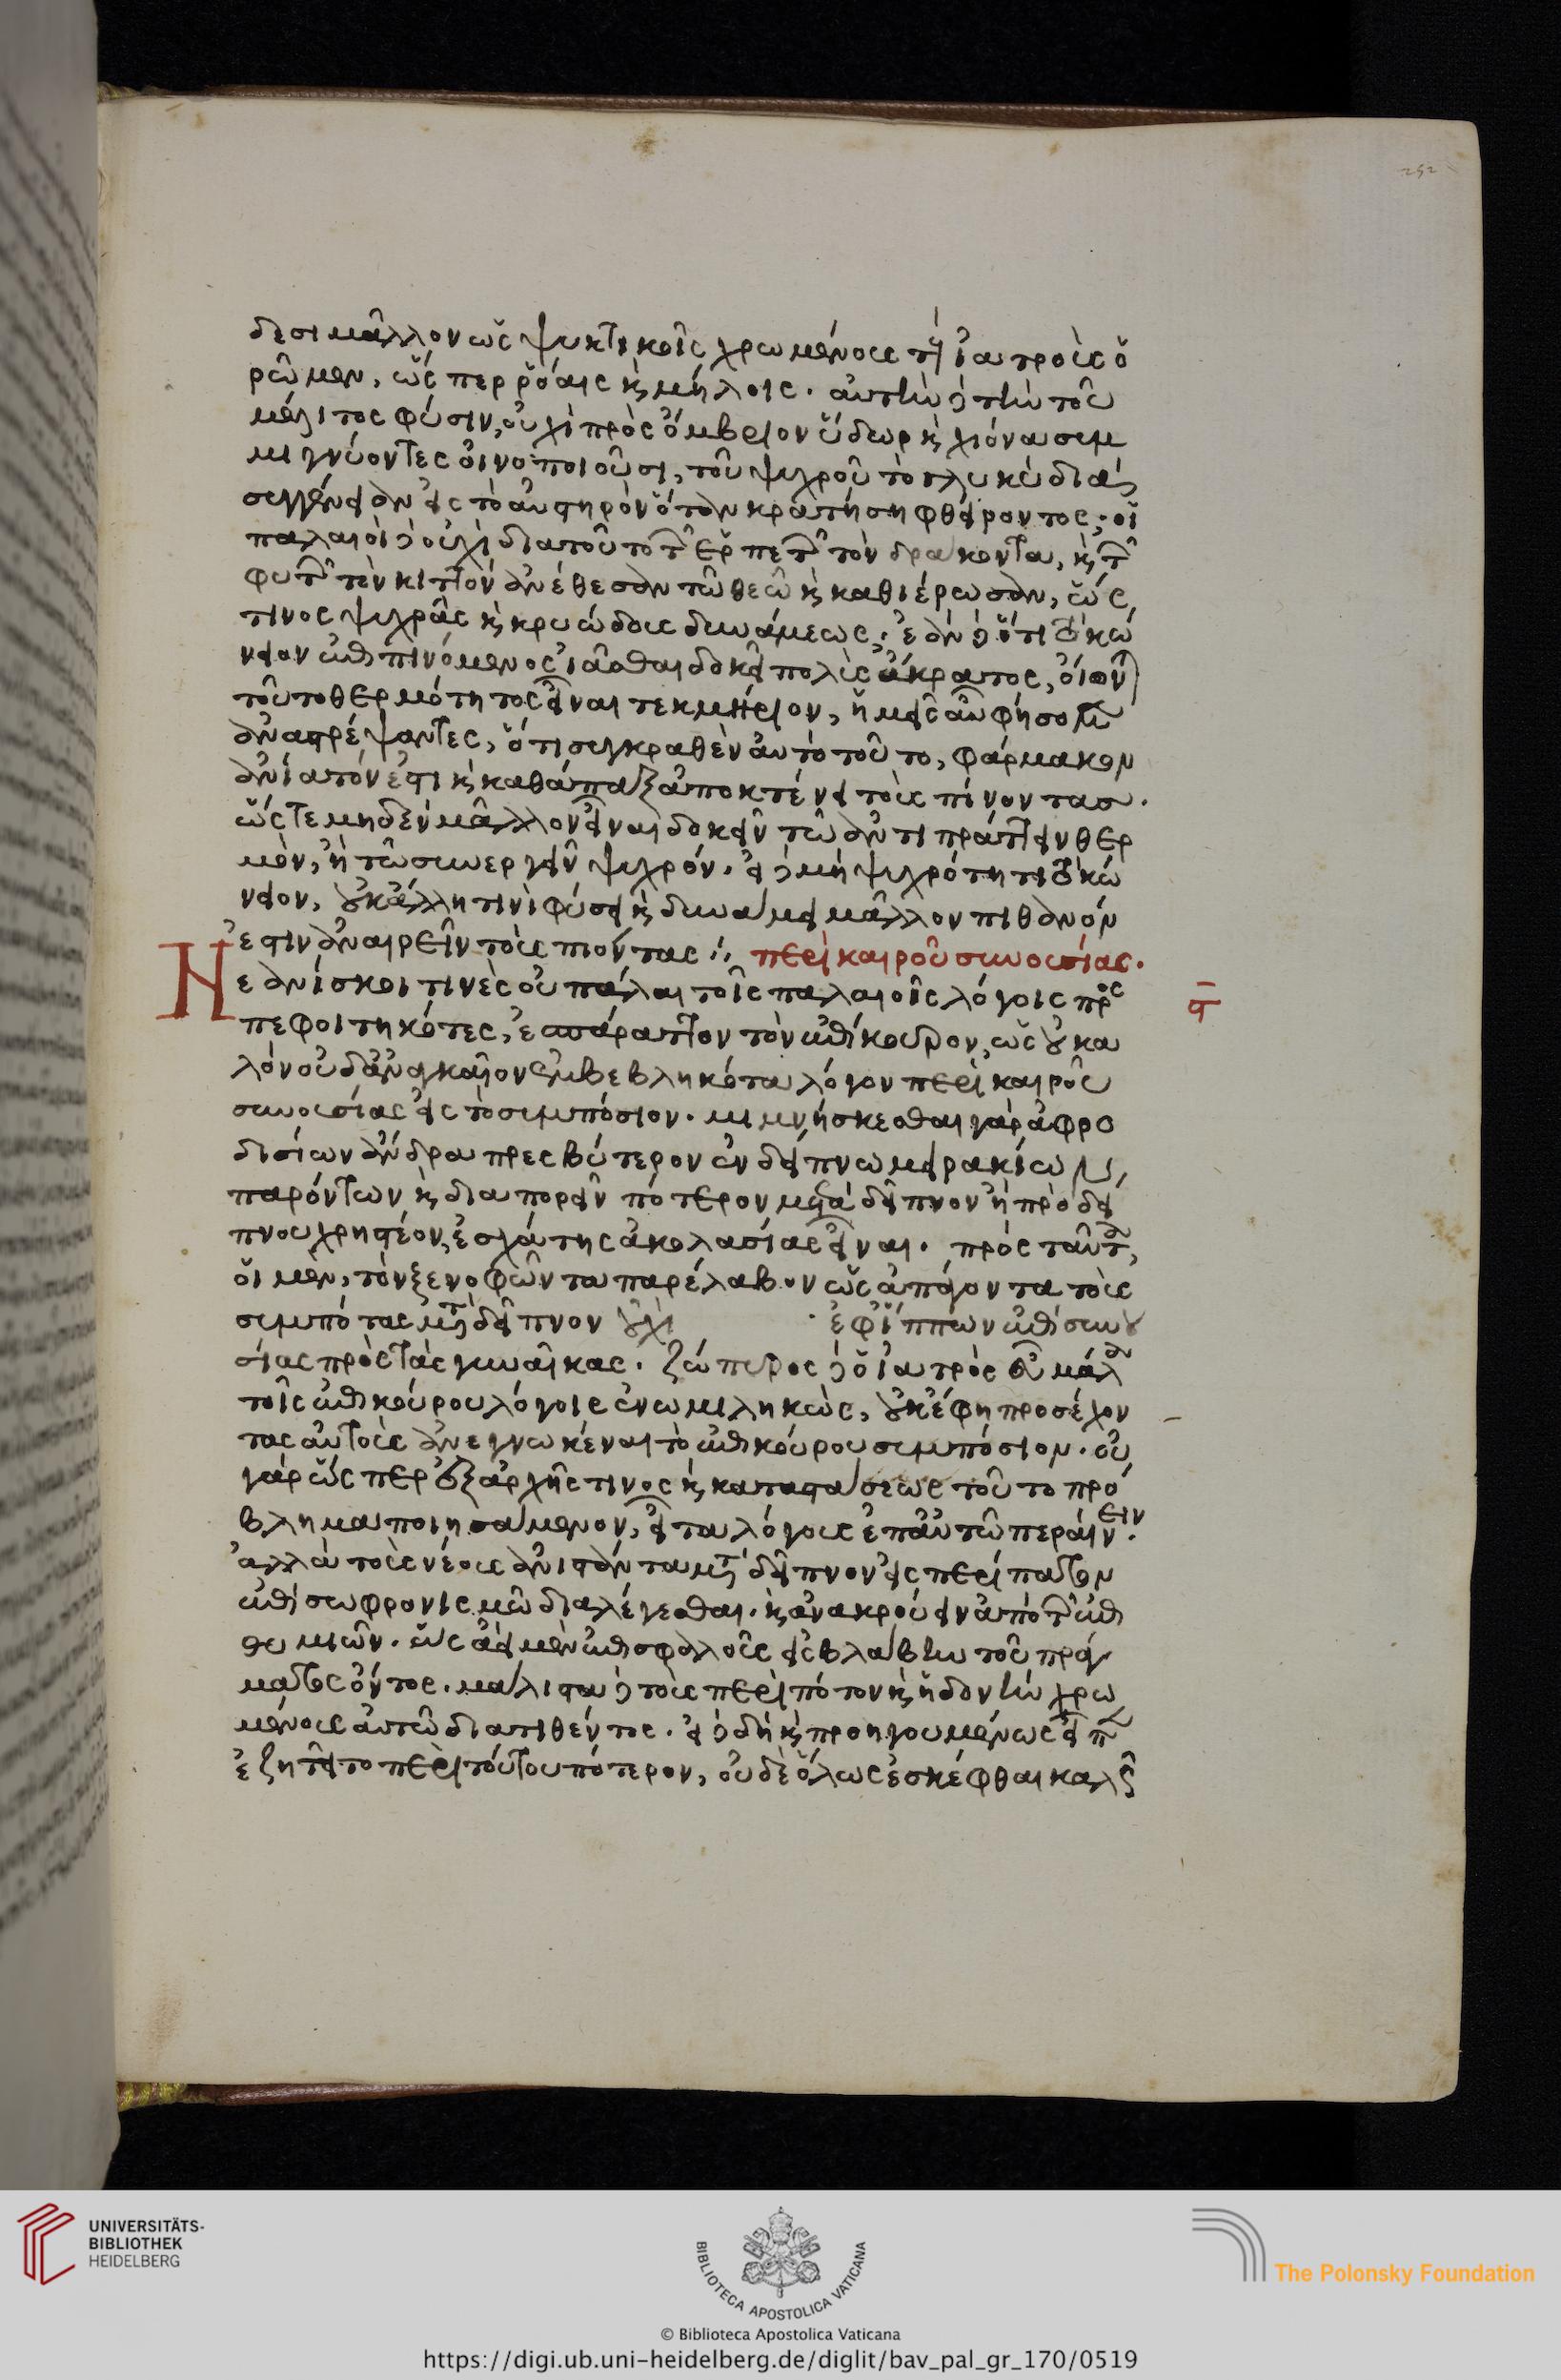 δεσι μᾶλλον ὡς ψυκτικοῖς χρωμένους τοὺς ἰατροὺς ὁ
ρῶμεν, ὥσπερ ῥόαις καὶ μήλοις. αὐτὴν δὲ τὴν τοῦ
μέλιτος φύσιν, οὐχὶ πρὸς ὄμβριον ὕδωρ καὶ χιόνα συμ
μιγνύοντες οἰνοποιοῦσι, τοῦ ψυχροῦ τὸ γλυκὺ διὰ
συγγένειαν εἰς τὸ αὐστηρὸν ὅταν κρατήσῃ φθείροντος; οἱ
παλαιοὶ δὲ οὐχὶ διὰ τοῦτο τῶν ἑρπετῶν τὸν δράκοντα, καὶ τῶν
φυτῶν τὸν κιττὸν ἀνέθεσαν τῶ θεῶ καὶ καθιέρωσαν, ὥς
τινος ψυχρᾶς καὶ κρυώδους δυνάμεως; ἐὰν δὲ ὅτι τὸ κώ
νειον ἐπιπινόμενος ἰᾶσθαι δοκεῖ πολὺς ἄκρατος, οἴωνται
τοῦτο θερμότητος εἶναι τεκμήριον, ἡμεῖς αὖ φήσομεν
ἀναστρέψαντες, ὅτι συγκραθὲν αὐτὸ τοῦτο, φάρμακον
ἀνίατόν ἐστι καὶ καθάπαξ ἀποκτένει τοὺς πίνοντας.
ὥστε μηδὲν μᾶλλον εἶναι δοκεῖν τῶ ἀντιπράττειν θερ
μὸν, ἢ τῶ συνεργεῖν ψυχρόν. εἰ δὲ μὴ ψυχρότητι τὸ κώ
νειον, οὐκ ἄλλη τινὶ φύσει καὶ δυνάμει μᾶλλον πιθανόν
ἐστιν ἀναιρεῖν τοὺς πιόντας: περὶ καιροῦ συνουσίας.
Νεανίσκοι τινὲς οὐ πάλαι τοῖς παλαιοῖς λόγοις προς
πεφοιτηκότες, ἐσπάραττον τὸν ἐπίκουρον, ὡς οὐ κα
λὸν οὐδ' ἀναγκαῖον ἐμβεβληκότα λόγον περὶ καιροῦ
συνουσίας εἰς τὸ συμπόσιον. μιμνήσκεσθαι γὰρ ἀφρο
δισίων ἄνδρα πρεσβύτερον ἐν δείπνω μειρακίων
παρόντων καὶ διαπορεῖν πότερον μετὰ δεῖπνον ἢ πρὸ δεί
πνου χρηστέον, ἐσχάτης ἀκολασίας εἶναι. πρὸς ταῦτα,
οἱ μὲν, τὸν ξενοφῶντα παρέλαβον ὡς ἀπάγοντα τοὺς
συμπότας μετὰ δεῖπνον οὐχὶ ἐφ' ἵππων ἐπὶ συνου
σίας πρὸς τὰς γυναῖκας. ζώπυρος δὲ ὁ ἰατρὸς εὖ μάλα
τοῖς ἐπικούρου λόγοις ἐνωμιληκὼς, οὐκ ἔφη προσέχον
τας αὐτοὺς ἀνεγνωκέναι τὸ ἐπικούρου συμπόσιον. οὐ
γὰρ ὥσπερ ἐξ ἀρχῆς τινος καὶ καταστάσεως τοῦτο πρό
βλημα ποιησάμενον, εἶτα λόγους ἐπ' αὐτῶ περαίνειν.
ἀλλὰ τοὺς νέους ἀνιστάντα μετὰ δεῖπνον εἰς περίπατον
ἐπὶ σωφρονισμῶ διαλέγεσθαι. καὶ ἀνακρούειν ἀπὸ τῶν ἐπι
θυμιῶν. ὡς ἀεὶ μὲν ἐπισφαλοῦς εἰς βλάβην τοῦ πράγ
ματος ὄντος. μάλιστα δὲ τοὺς περὶ πότον καὶ ἡδονὴν χρω
μένους αὐτῶ διατιθέντος. εἰ δὲ δὴ καὶ προηγουμένως
ἐζητεῖτο περὶ τούτου πότερον, οὐδὲ ὅλως ἐσκέφθαι καλῶς
UNIVERSITÄTS-
BIBLIOTHEK
HEIDELBERG
BIBLIOTECA APOSTOLICA VATICANA
The Polonsky Foundation
© Biblioteca Apostolica Vaticana
https://digi.ub.uni-heidelberg.de/diglit/bav_pal_gr_170/0519